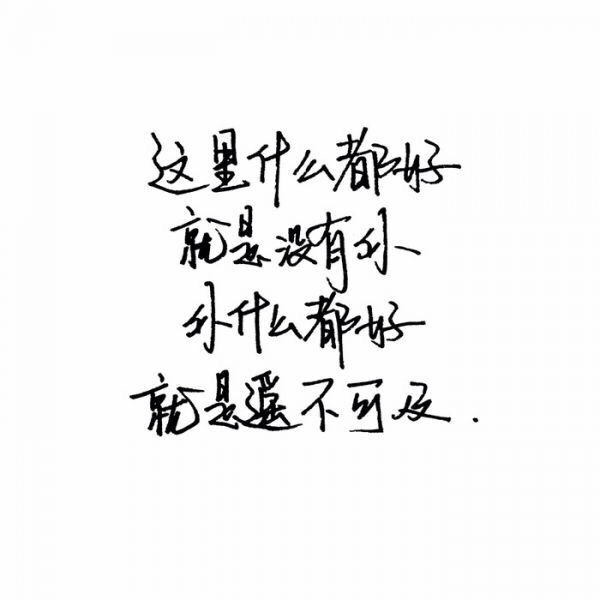 这里什么都好
就是没有你
你什么都好
就是遥不可及.